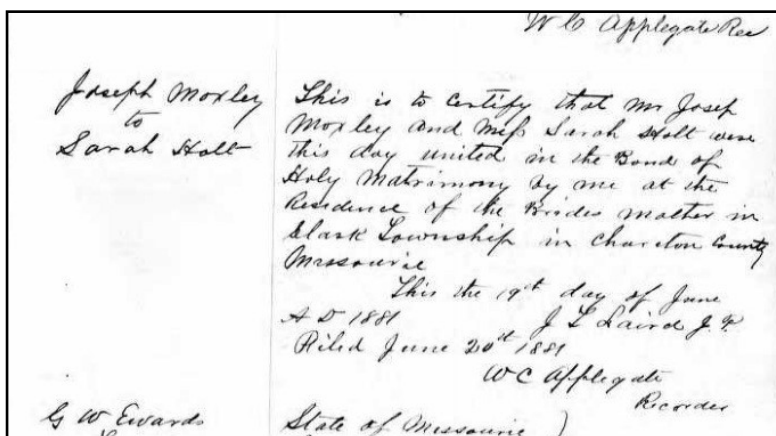 W C Applegate Rec
Joseph Moxley
to
Sarah Holt
This is to certify that Mr Josep
Moxley and Miss Sarah Holt were
this day united in the Bond of
Holy Matrimony by me at the
Residence of the Brides mother in
Clark Township in Chariton County
Missourie
This the 19th day of June
A D 1881 J L Laird J. P.
Filed June 20th 1881
W C Applegate
Recorder
G W Ewards
State of Missourie )